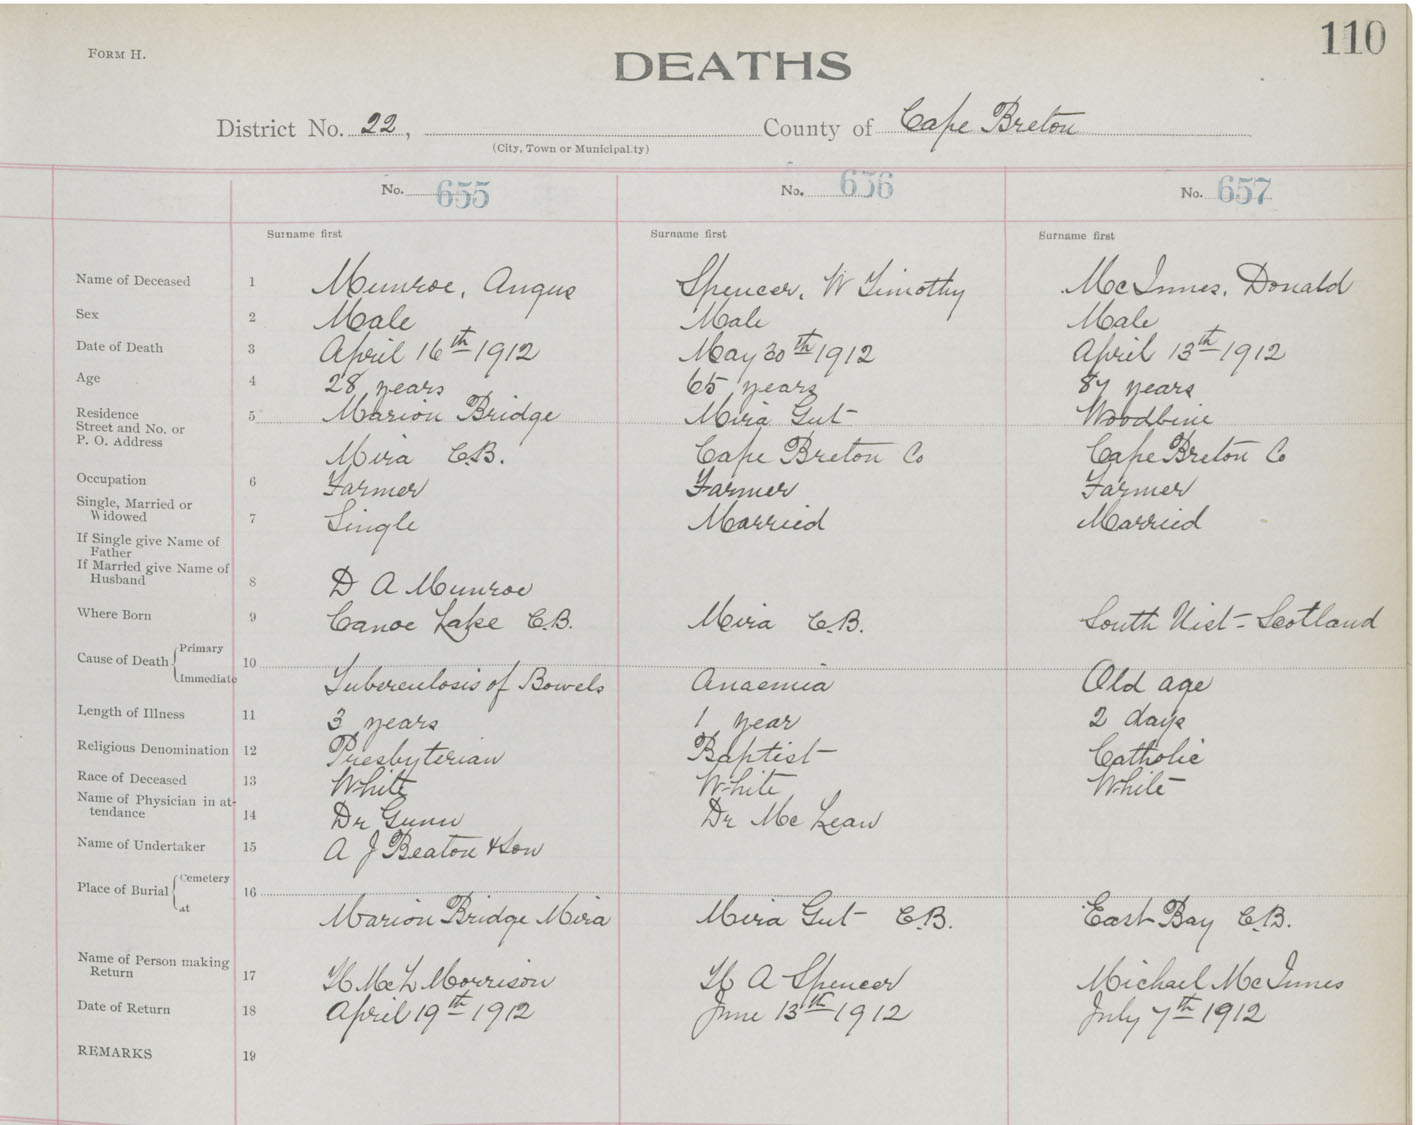 110
FORM H.
DEATHS
District No. 22, County of Cape Breton
(City, Town or Municipality)
No. 655 No. 656 No. 657
Surname first Surname first Surname first
Name of Deceased 1 Munroe, Angus Spencer, W Timothy McInnes, Donald
Sex 2 Male Male Male
Date of Death 3 April 16th 1912 May 30th 1912 April 13th 1912
Age 4 28 years 65 years 87 years
Residence 5 Marion Bridge Mira Gut Woodbine
Street and No. or
P. O. Address Mira C.B. Cape Breton Co Cape Breton Co
Occupation 6 Farmer Farmer Farmer
Single, Married or
Widowed 7 Single Married Married
If Single give Name of
Father
If Married give Name of
Husband 8 D A Munroe
Where Born 9 Canoe Lake C.B. Mira C.B. South Uist - Scotland
Cause of Death { Primary 10
Immediate Tuberculosis of Bowels Anaemia Old age
Length of Illness 11 3 years 1 year 2 days
Religious Denomination 12 Presbyterian Baptist Catholic
Race of Deceased 13 White White White
Name of Physician in at-
tendance 14 Dr Gunn Dr McLean
Name of Undertaker 15 A J Beaton & Son
Place of Burial { Cemetery 16
at Marion Bridge Mira Mira Gut C.B. East Bay C.B.
Name of Person making
Return 17 H McL Morrison H A Spencer Michael McInnes
Date of Return 18 April 19th 1912 June 13th 1912 July 7th 1912
REMARKS 19